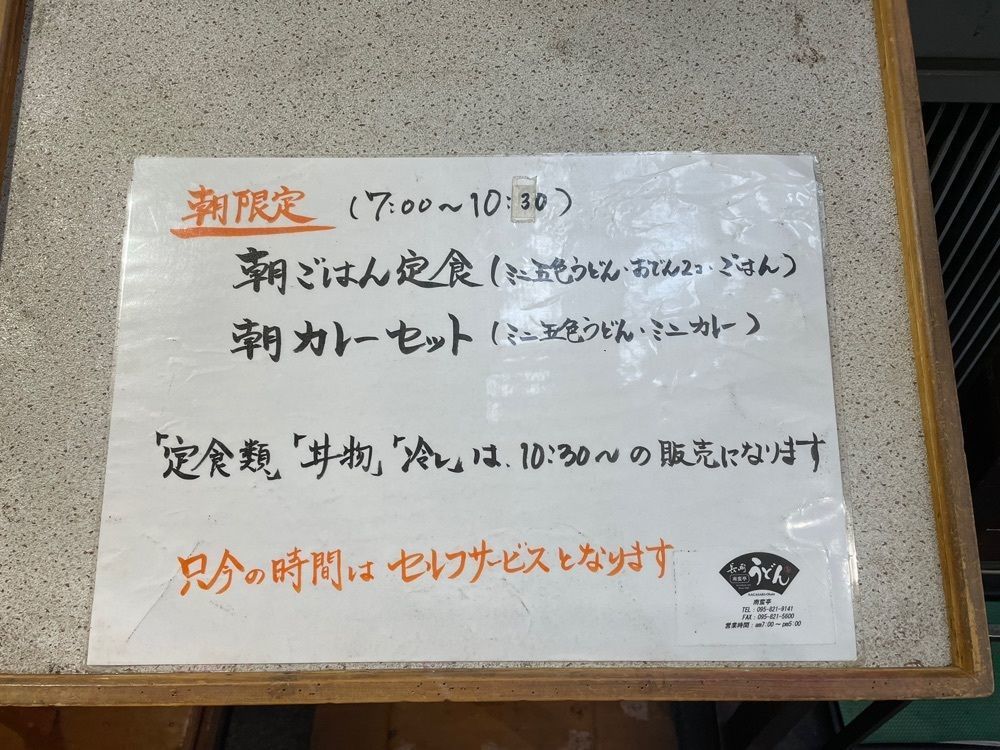 朝限定 (7:00～10:30)
朝ごはん定食(ミニ五色うどん・おでん2コ・ごはん)
朝カレーセット(ミニ五色うどん・ミニカレー)
「定食類」「丼物」「冷し」は、10:30～の販売になります
只今の時間はセルフサービスとなります
長崎
うどん
南蛮亭
NAGASAKI-UDON
南蛮亭
TEL：095-821-9141
FAX：095-821-5600
営業時間：am7:00～pm5:00